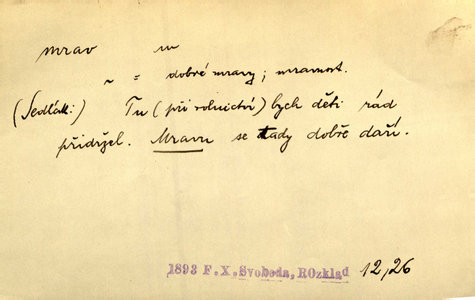 mrav m
~ = dobré mravy; mravnost.
(Sedlák:) Tu (při rolnictví) bych děti rád
přidržel. Mravu se tady dobře daří.
1893 F.X.Svoboda, ROzklad 12,26